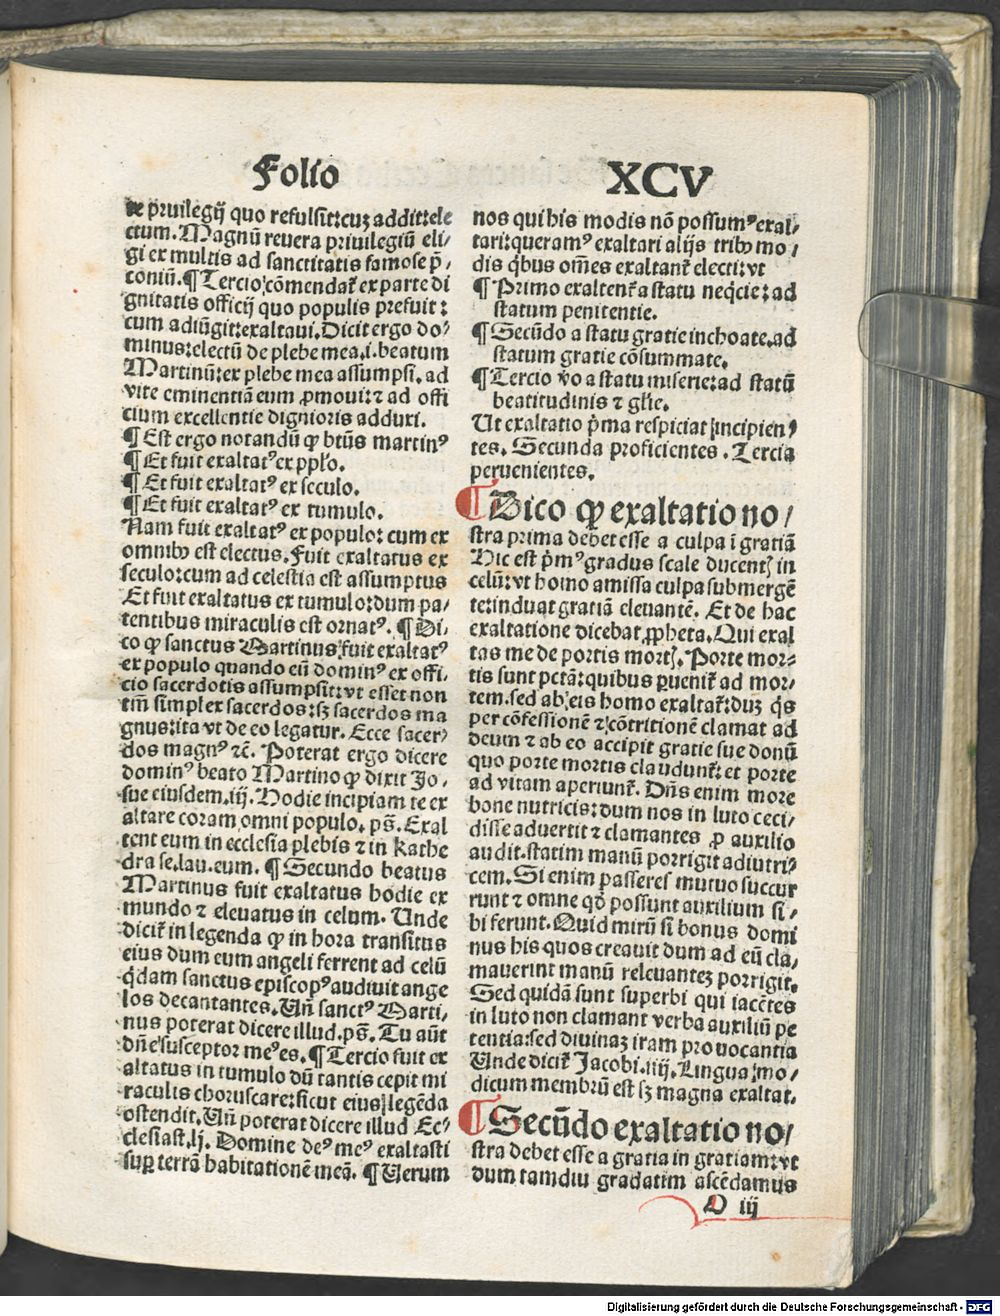 Folio
XCV
de pruilegij quo refulsit: cuꝫ addit: ele
ctum. Magnū reuera priuilegiū eli/
gi ex multis ad sanctitatis famose p̄/
coniū. ¶ Tercio cōmendat̄ ex parte di
gnitatis officij quo populis prefuit:
cum adiūgit: exaltaui. Dicit ergo do/
minus: electū de plebe mea .i. beatum
Martinū: ex plebe mea assumpsi. ad
vite eminentiā eum ꝓmoui: ⁊ ad offi
cium excellentie dignioris adduxi.
¶ Est ergo notandū ꝙ btūs martinꝰ
¶ Et fuit exaltatꝰ ex pplo.
¶ Et fuit exaltatꝰ ex seculo.
¶ Et fuit exaltatꝰ ex tumulo.
Nam fuit exaltatꝰ ex populo: cum ex
omnibꝰ est electus. Fuit exaltatus ex
seculo: cum ad celestia est assumptus
Et fuit exaltatus ex tumulo: dum pa/
tentibus miraculis est ornatꝰ. ¶ Di/
co ꝙ sanctus Martinus fuit exaltatꝰ
ex populo quando eū dominꝰ ex offi/
cio sacerdotis assumpsit: vt esset non
tm̄ simplex sacerdos: sꝫ sacerdos ma
gnus: ita vt de eo legatur. Ecce sacer/
dos magnꝰ ⁊c̄. Poterat ergo dicere
dominꝰ beato Martino ꝙ dixit Jo/
sue eiusdem .iij. Hodie incipiam te ex
altare coram omni populo. ps̄. Exal
tent eum in ecclesia plebis ⁊ in kathe
dra se. lau. eum. ¶ Secundo beatus
Martinus fuit exaltatus hodie ex
mundo ⁊ eleuatus in celum. Unde
dicit̄ in legenda ꝙ in hora transitus
eius dum eum angeli ferrent ad celū
q̇dam sanctus episcopꝰ audiuit ange
los decantantes. Un̄ sanctꝰ Marti/
nus poterat dicere illud. ps̄. Tu aūt
dn̄e susceptor meꝰ es. ¶ Tercio fuit ex
altatus in tumulo dū tantis cepit mi
raculis choruscare: sicut eius legēda
ostendit. Un̄ poterat dicere illud Ec/
clesiast. lj. Domine deꝰ meꝰ exaltasti
suꝑ terrā habitationē meā. ¶ Uerum
nos qui his modis nō possumꝰ exal/
tari: queramꝰ exaltari alijs tribꝰ mo/
dis q̇bus om̄es exaltant̄ electi: vt
¶ Primo exaltent̄ a statu neq̇cie: ad
statum penitentie.
¶ Secūdo a statu gratie inchoate. ad
statum gratie cōsummate.
¶ Tercio v̄o a statu miserie: ad statū
beatitudinis ⁊ gl̄ie.
Ut exaltatio p̄ma respiciat incipien/
tes. Secunda proficientes. Tercia
peruenientes.
¶ Dico ꝙ exaltatio no/
stra prima debet esse a culpa ī gratiā
Hic est p̄mꝰ gradus scale ducentꝭ in
celū: vt homo amissa culpa submergē
te: induat gratiā eleuantē. Et de hac
exaltatione dicebat ꝓpheta. Qui exal
tas me de portis mortꝭ. Porte mor/
tis sunt pctā: quibus ꝑuenit̄ ad mor/
tem. sed ab eis homo exaltat̄: duꝫ q̇s
per cōfessionē ⁊ cōtritionē clamat ad
deum ⁊ ab eo accipit gratie sue donū
quo porte mortis claudunt̄: et porte
ad vitam aperiunt̄. Dn̄s enim more
bone nutricis: dum nos in luto ceci/
disse aduertit ⁊ clamantes ꝓ auxilio
audit. statim manū porrigit adiutri/
cem. Si enim passeres mutuo succur
runt ⁊ omne qd̄ possunt auxilium si/
bi ferunt. Quid mirū si bonus domi
nus his quos creauit dum ad eū cla/
mauerint manū releuanteꝫ porrigit.
Sed quidā sunt superbi qui iacētes
in luto non clamant verba auxiliū pe
tentia: sed diuinaꝫ iram prouocantia
Unde dicit̄ Jacobi. iij. Lingua mo/
dicum membrū est sꝫ magna exaltat.
¶ Secūdo exaltatio no/
stra debet esse a gratia in gratiam: vt
dum tamdiu gradatim ascēdamus
O iij
Digitalisierung gefördert durch die Deutsche Forschungsgemeinschaft - DFG